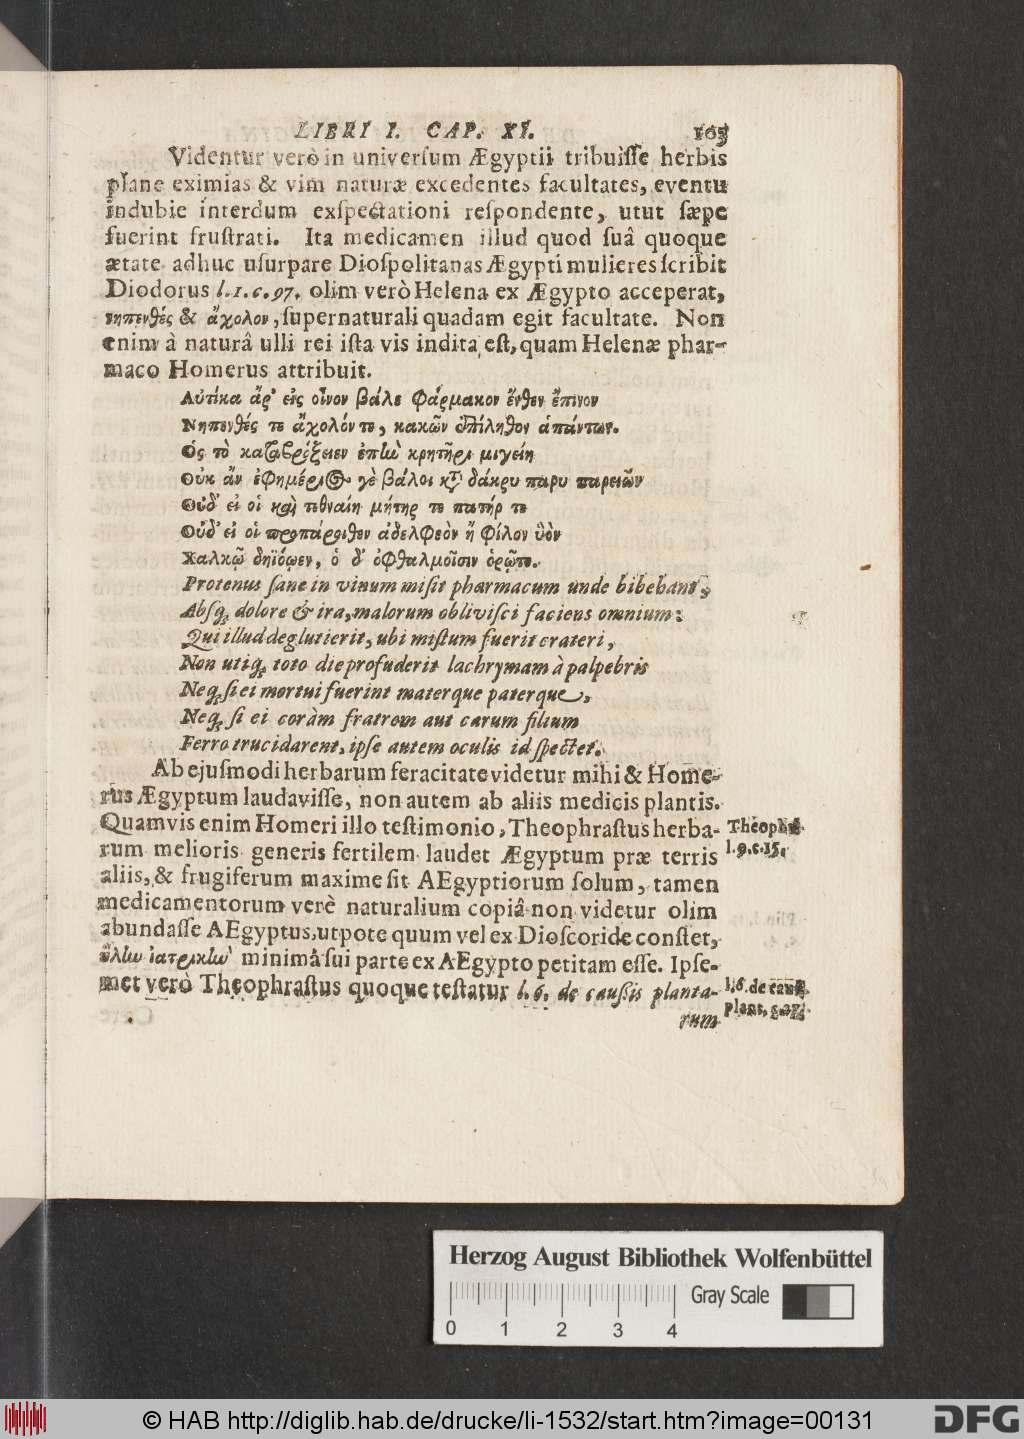 LIBRI I. CAP. XI. 103
Videntur verò in universum Ægyptii tribuisse herbis
plane eximias & vim naturæ excedentes facultates, eventu
indubie interdum exspectationi respondente, utut sæpe
fuerint frustrati. Ita medicamen illud quod suâ quoque
ætate adhuc usurpare Diospolitanas Ægypti mulieres scribit
Diodorus l. 1. c. 97. olim verò Helena ex Ægypto acceperat,
νηπενθές & ἄχολον, supernaturali quadam egit facultate. Non
enim à naturâ ulli rei ista vis indita est, quam Helenæ phar-
maco Homerus attribuit.
Αὐτίκα ἄρ᾽ εἰς οἶνον βάλε φάρμακον ἔνθεν ἔπινον
Νηπενθές τε ἄχολόν τε, κακῶν ἐπίληθον ἁπάντων.
Ὅς τὸ καταβρόξειεν ἐπὴν κρητῆρι μιγείη
Οὐκ ἄν ἐφημέριός γὲ βάλοι κτ̃ δάκρυ παρυ παρειῶν
Οὐδ᾽ εἰ οἱ καὶ τεθναίη μήτηρ τε πατήρ τε
Οὐδ᾽ εἰ οἱ προπάροιθεν ἀδελφεὸν ἤ φίλον ὑὸν
Χαλκῷ δηϊόῳεν, ὁ δ᾽ ὀφθαλμοῖσιν ὁρῷτο.
Protenus sane in vinum misit pharmacum unde bibebant,
Absq; dolore & ira, malorum oblivisci faciens omnium:
Qui illud deglutierit, ubi mistum fuerit crateri,
Non utiq; toto die profuderit lachrymam à palpebris
Neq; si ei mortui fuerint materque paterque,
Neq; si ei coràm fratrem aut carum filium
Ferro trucidarent, ipse autem oculis id spectet.
Ab ejusmodi herbarum feracitate videtur mihi & Home-
rus Ægyptum laudavisse, non autem ab aliis medicis plantis.
Quamvis enim Homeri illo testimonio, Theophrastus herba-
rum melioris generis fertilem laudet Ægyptum præ terris
aliis, & frugiferum maxime sit AEgyptiorum solum, tamen
medicamentorum verè naturalium copiâ non videtur olim
abundasse AEgyptus, utpote quum vel ex Dioscoride constet,
ὕλην ἰατρικὴν minimâ sui parte ex AEgypto petitam esse. Ipse-
met verò Theophrastus quoque testatur l. 6. de caussis planta-
rum
Theophr.
l. 9. c. 15.
l. 6. de caus.
plant. c. 27.
Herzog August Bibliothek Wolfenbüttel
0 1 2 3 4
Gray Scale
© HAB http://diglib.hab.de/drucke/li-1532/start.htm?image=00131
DFG